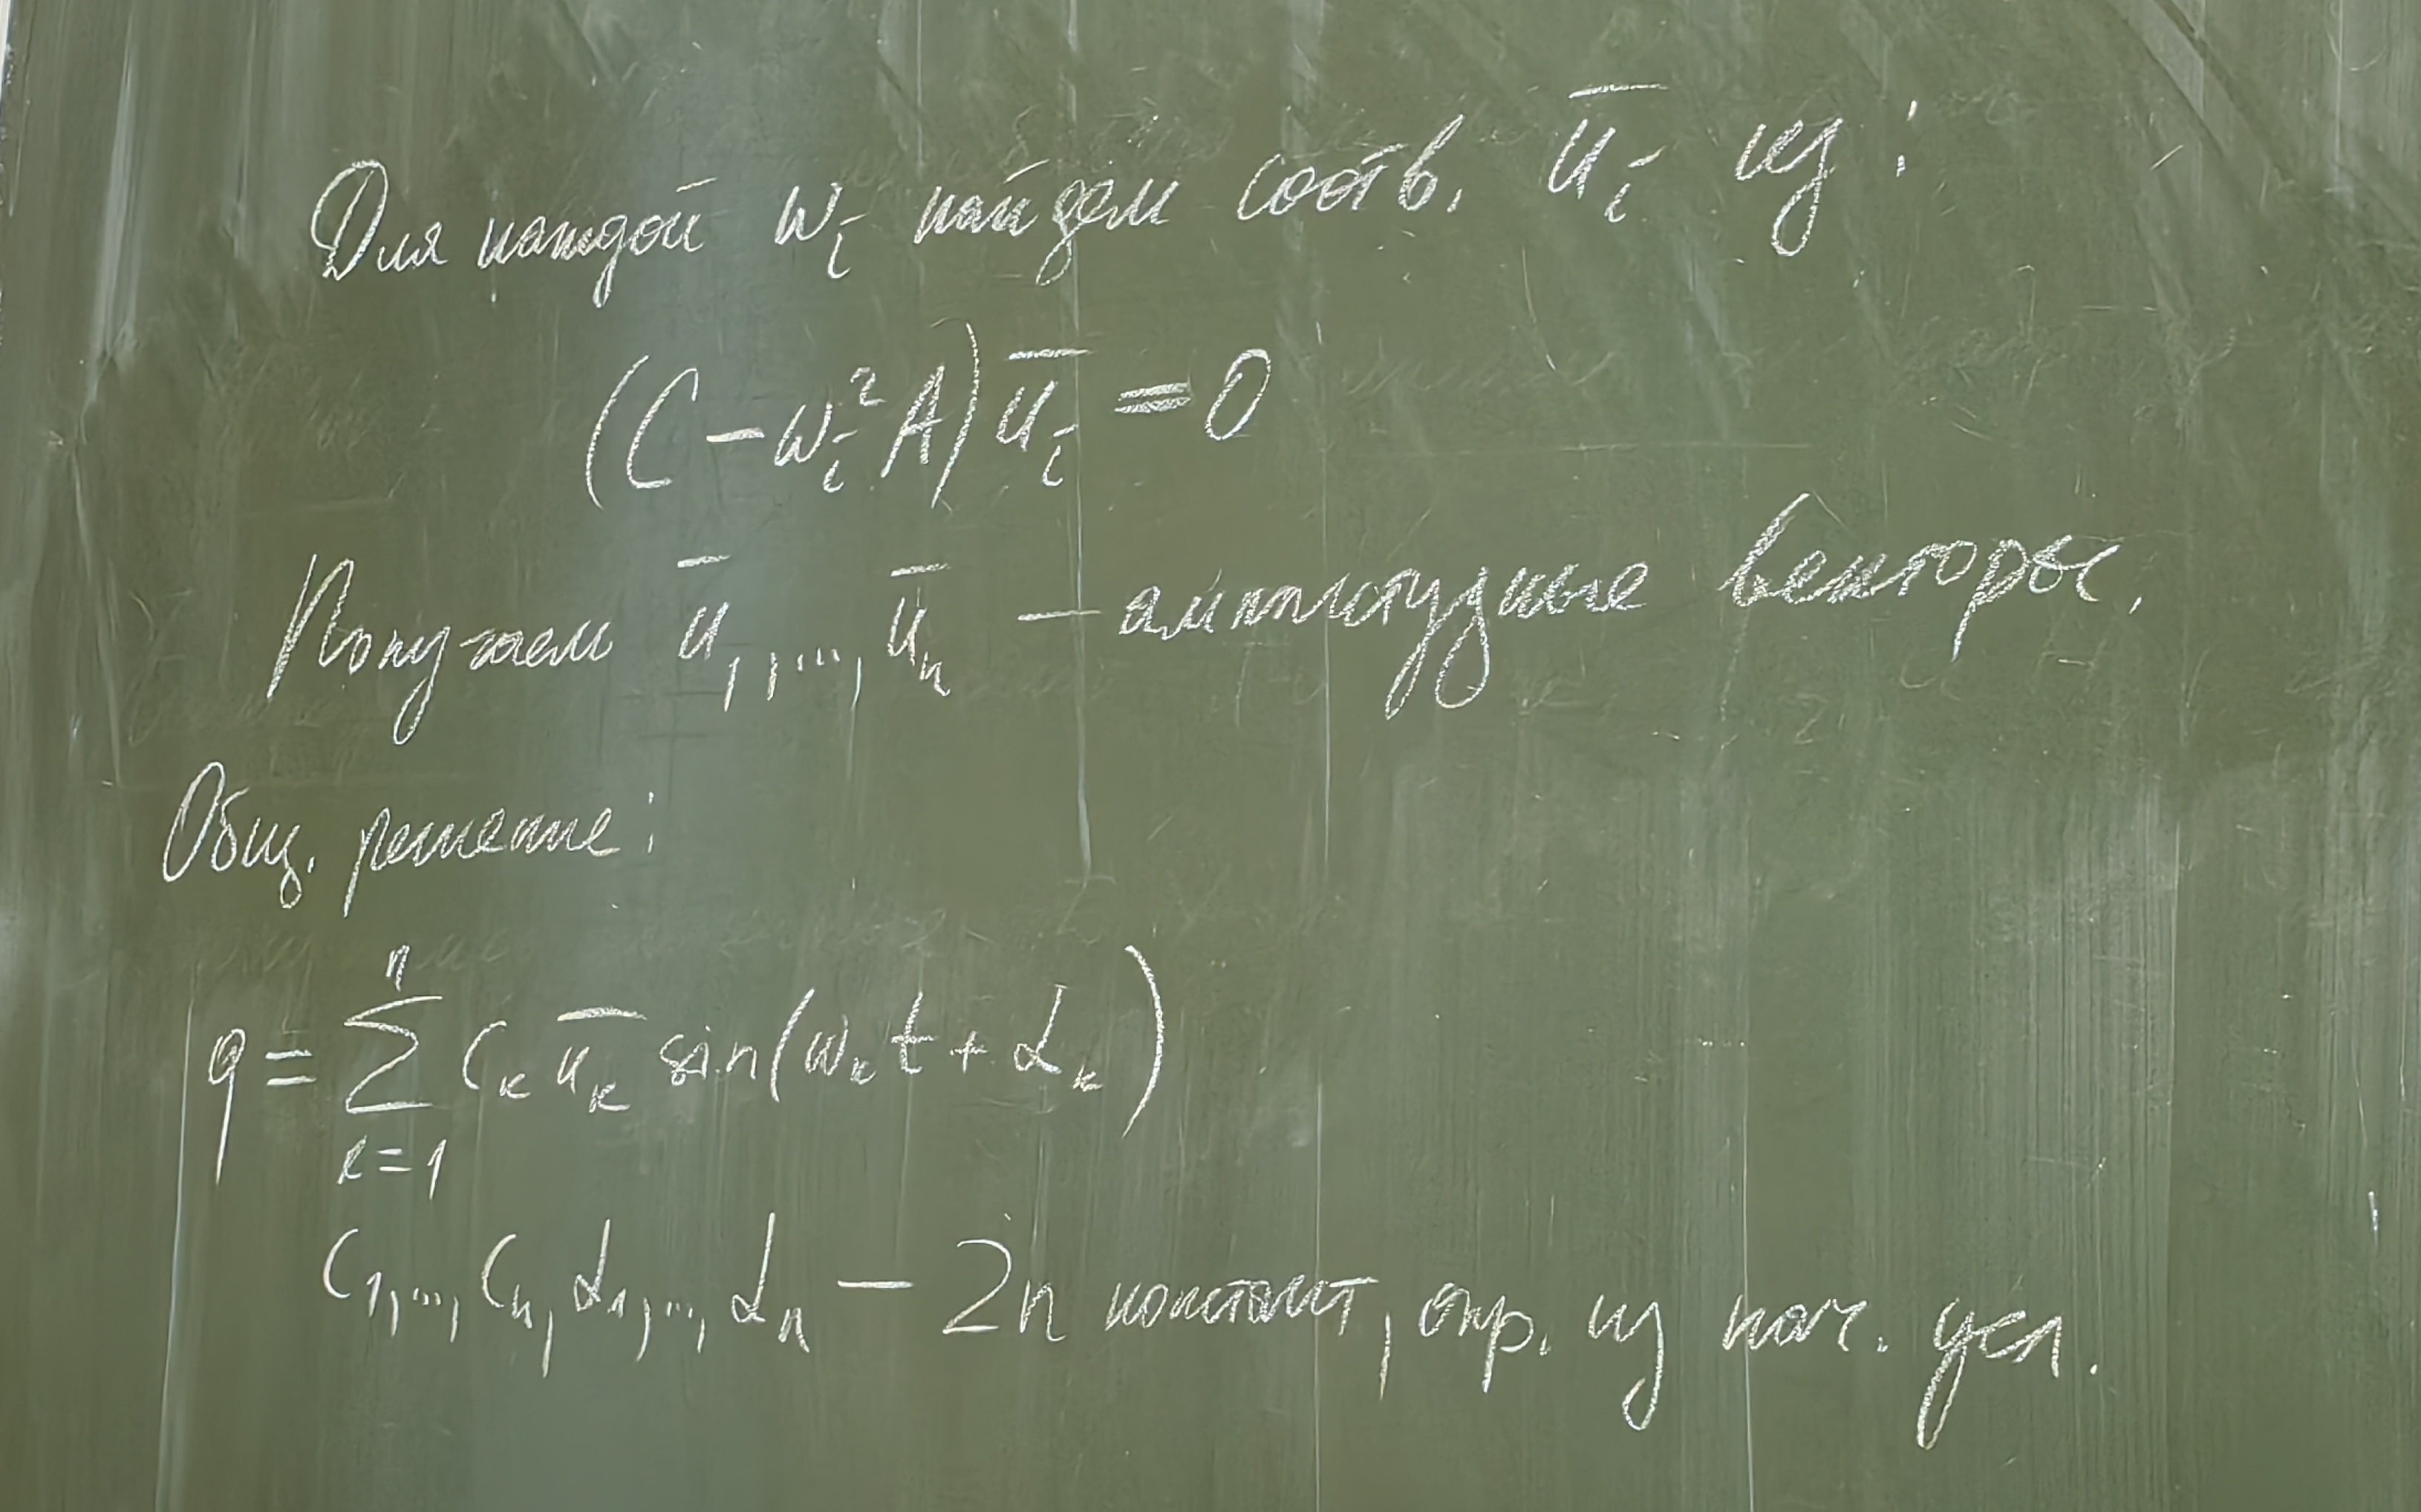 Для каждой ω_i найдем соотв. ū_i из:
(C − ω_i² A) ū_i = 0
Получаем ū_1, ..., ū_n — амплитудные векторы.
Общ. решение:
q = ∑_{k=1}^{n} C_k ū_k sin(ω_k t + α_k)
C_1, ..., C_n, α_1, ..., α_n — 2n констант, опр. из нач. усл.